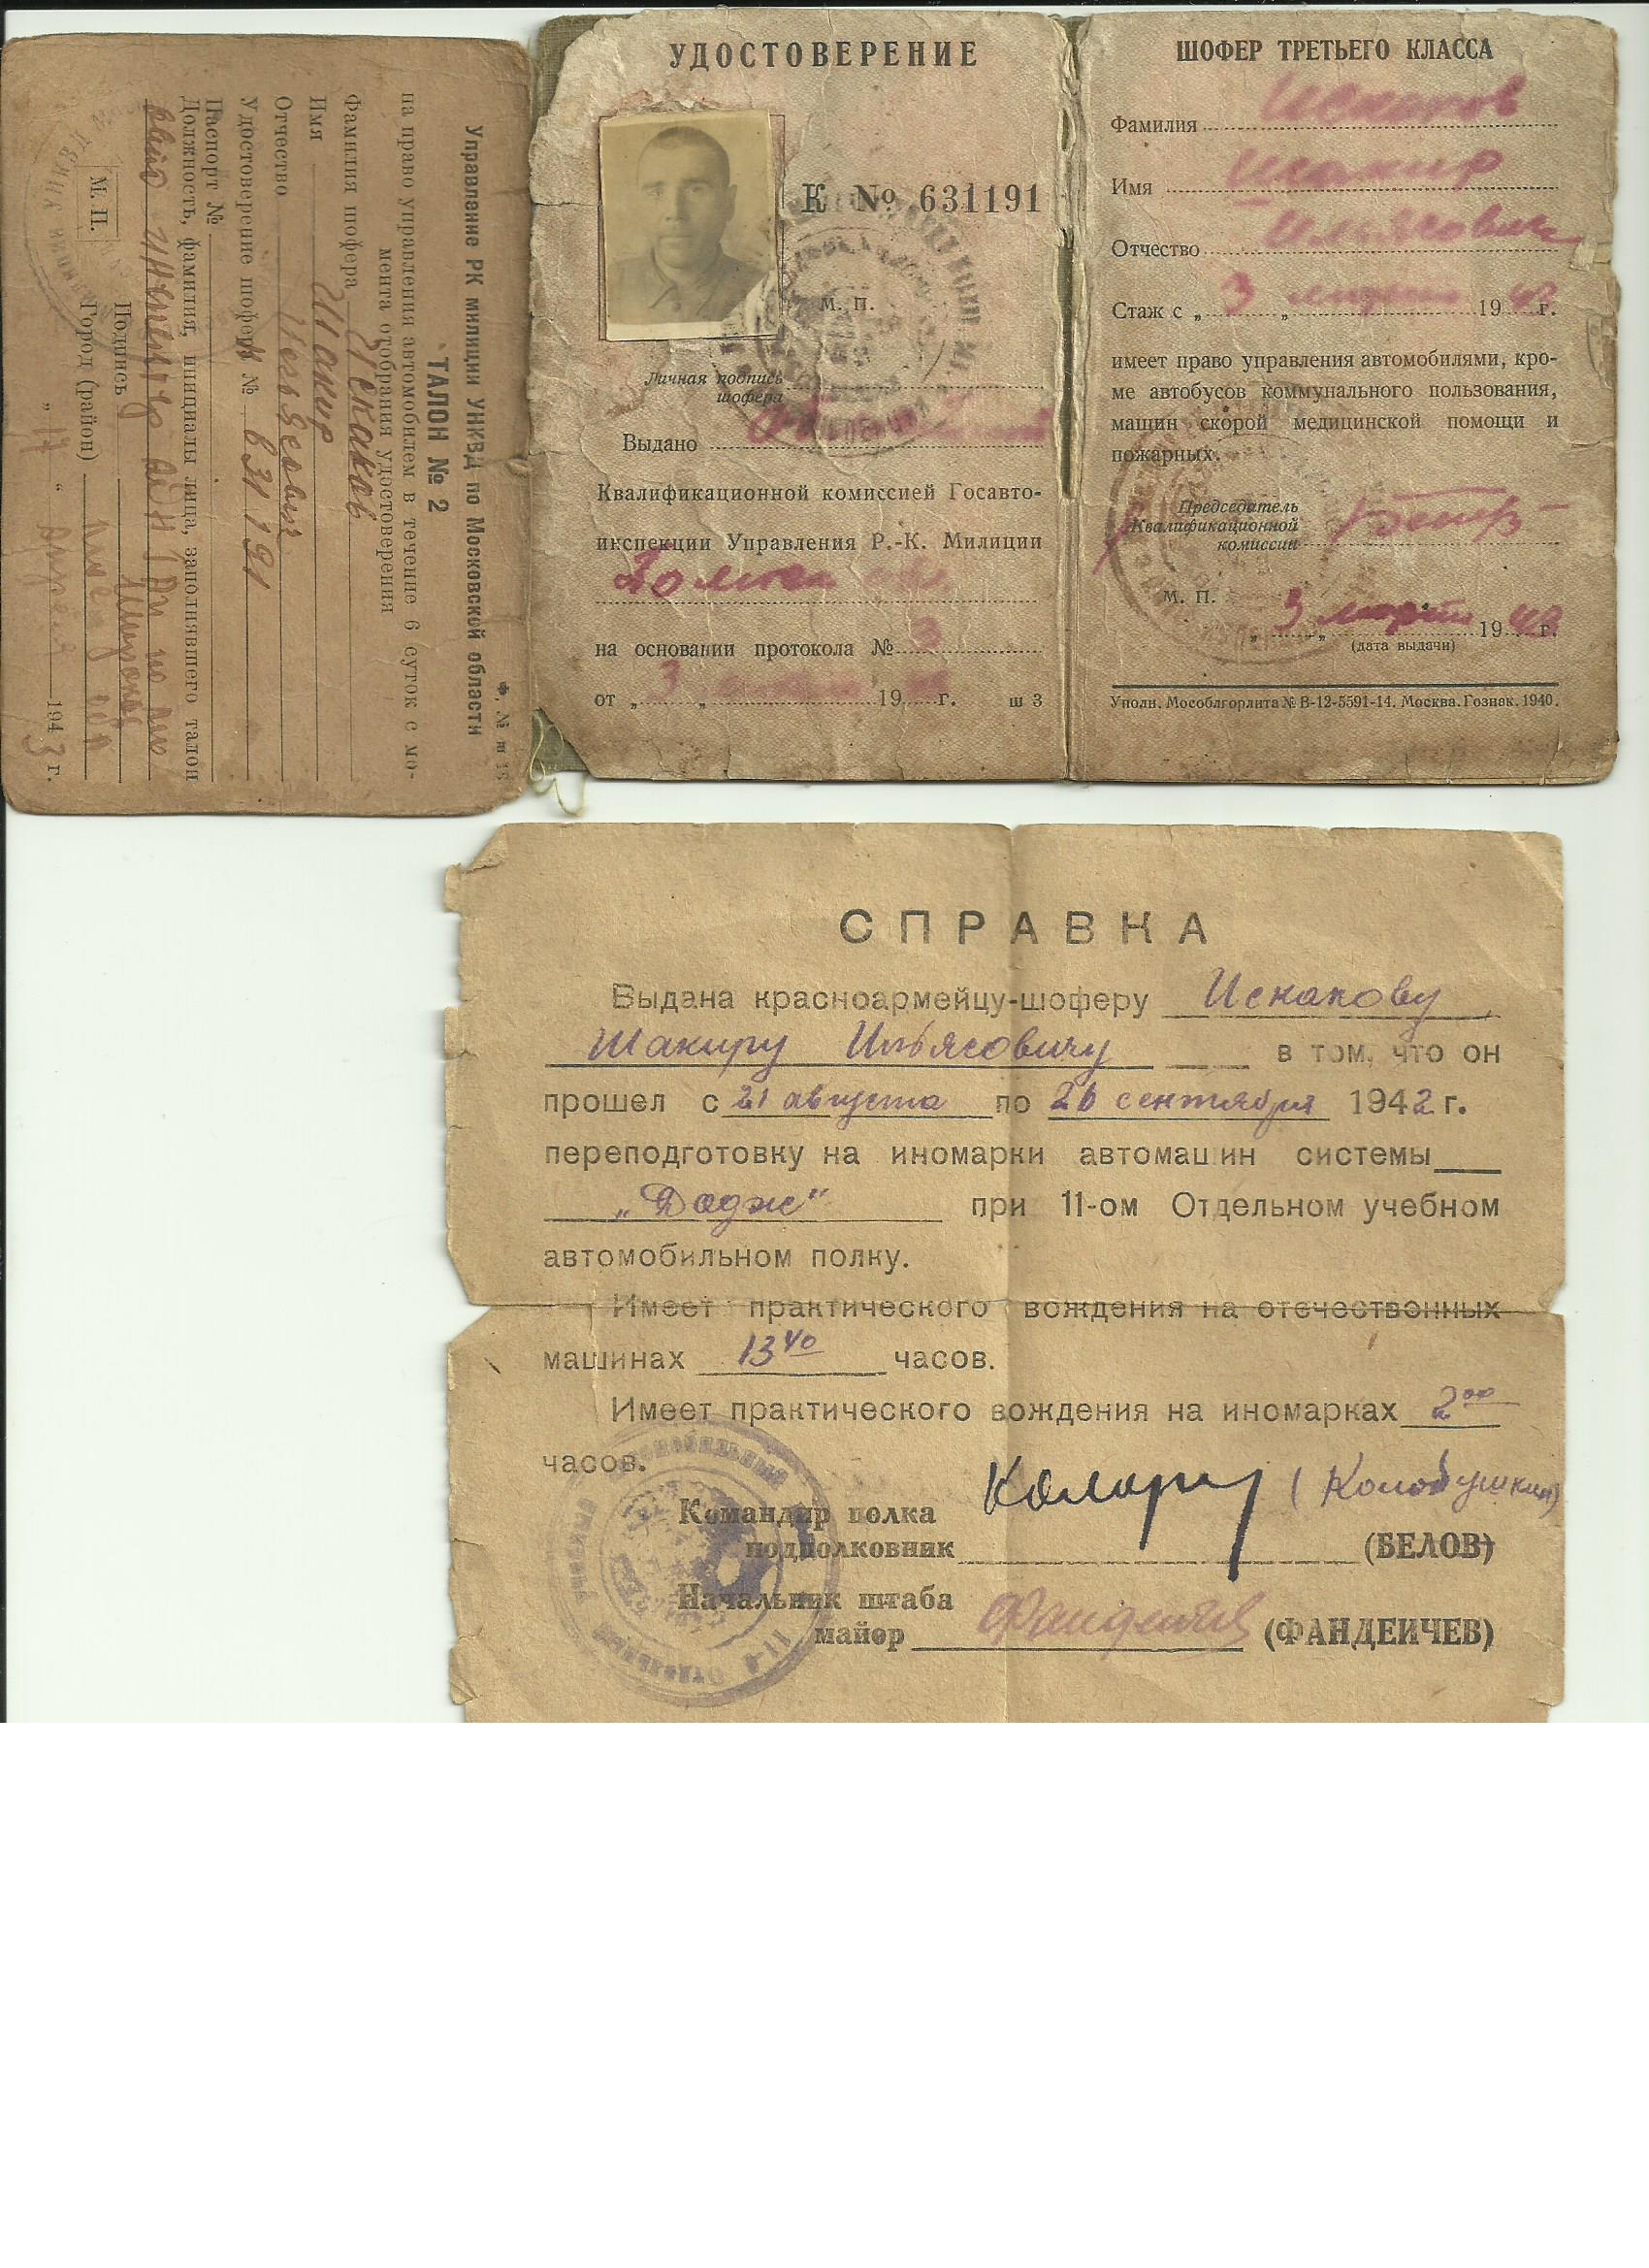 Ф. № ш 13
Управление РК милиции УНКВД по Московской области
ТАЛОН № 2
на право управления автомобилем в течение 6 суток с мо-
мента отобрания удостоверения
Фамилия шофера Искаков
Имя Шакир
Отчество
Удостоверение шофера К № 631191
Паспорт №
Должность, фамилия, инициалы лица, заполнявшего талон
Подпись
Город (район)
М. П.
„ 17 “ 1943 г.
УДОСТОВЕРЕНИЕ
К № 631191
М. П.
Личная подпись
шофера
Выдано
Квалификационной комиссией Госавто-
инспекции Управления Р.-К. Милиции
на основании протокола №
от „ 3 „ 19 г. ш 3
ШОФЕР ТРЕТЬЕГО КЛАССА
Фамилия Искаков
Имя Шакир
Отчество Ильясович
Стаж с „ 3 „ марта 19 г.
имеет право управления автомобилями, кро-
ме автобусов коммунального пользования,
машин скорой медицинской помощи и
пожарных.
Председатель
Квалификационной
комиссии
М. П.
„ 3 „ марта 19 г.
(дата выдачи)
Уполн. Мособлгорлита № В-12-5591-14. Москва. Гознак. 1940.
СПРАВКА
Выдана красноармейцу-шоферу Искакову,
Шакиру Ильясовичу в том, что он
прошел с 21 августа по 26 сентября 1942 г.
переподготовку на иномарки автомашин системы
„Додж“ при 11-ом Отдельном учебном
автомобильном полку.
Имеет практического вождения на отечественных
машинах 13 40 часов.
Имеет практического вождения на иномарках 2 00
часов.
Командир полка
подполковник (БЕЛОВ)
Начальник штаба
майор (ФАНДЕИЧЕВ)